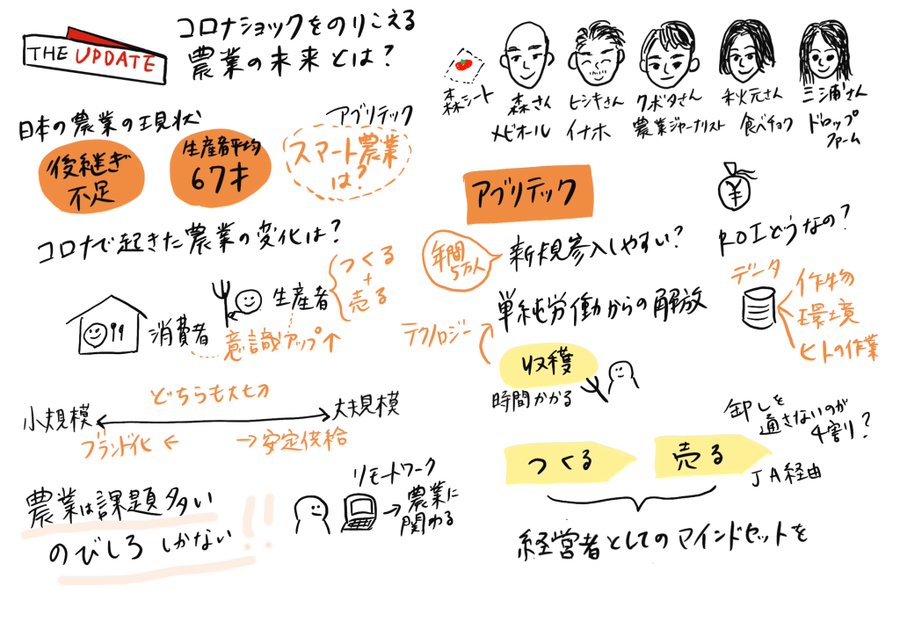 THE UPDATE
コロナショックをのりこえる
農業の未来とは?
森シート
森さん
メビオール
ヒシキさん
イナホ
クボタさん
農業ジャーナリスト
秋元さん
食べチョク
三浦さん
ドロップ
ファーム
日本の農業の現状
後継ぎ
不足
生産者平均
67才
アブリテック
スマート農業
は?
コロナで起きた農業の変化は?
消費者
生産者
つくる
+
売る
意識アップ↑
どちらも大切
小規模
大規模
ブランド化 ←
→ 安定供給
農業は課題多い
のびしろ しかない !!
リモートワーク
→ 農業に
関わる
アブリテック
年間
5万人
新規参入しやすい?
単純労働からの解放
テクノロジー
収穫
時間かかる
¥
ROIどうなの?
データ
作物
環境
ヒトの作業
つくる
売る
卸しを
通さないのが
4割?
JA経由
経営者としてのマインドセットを